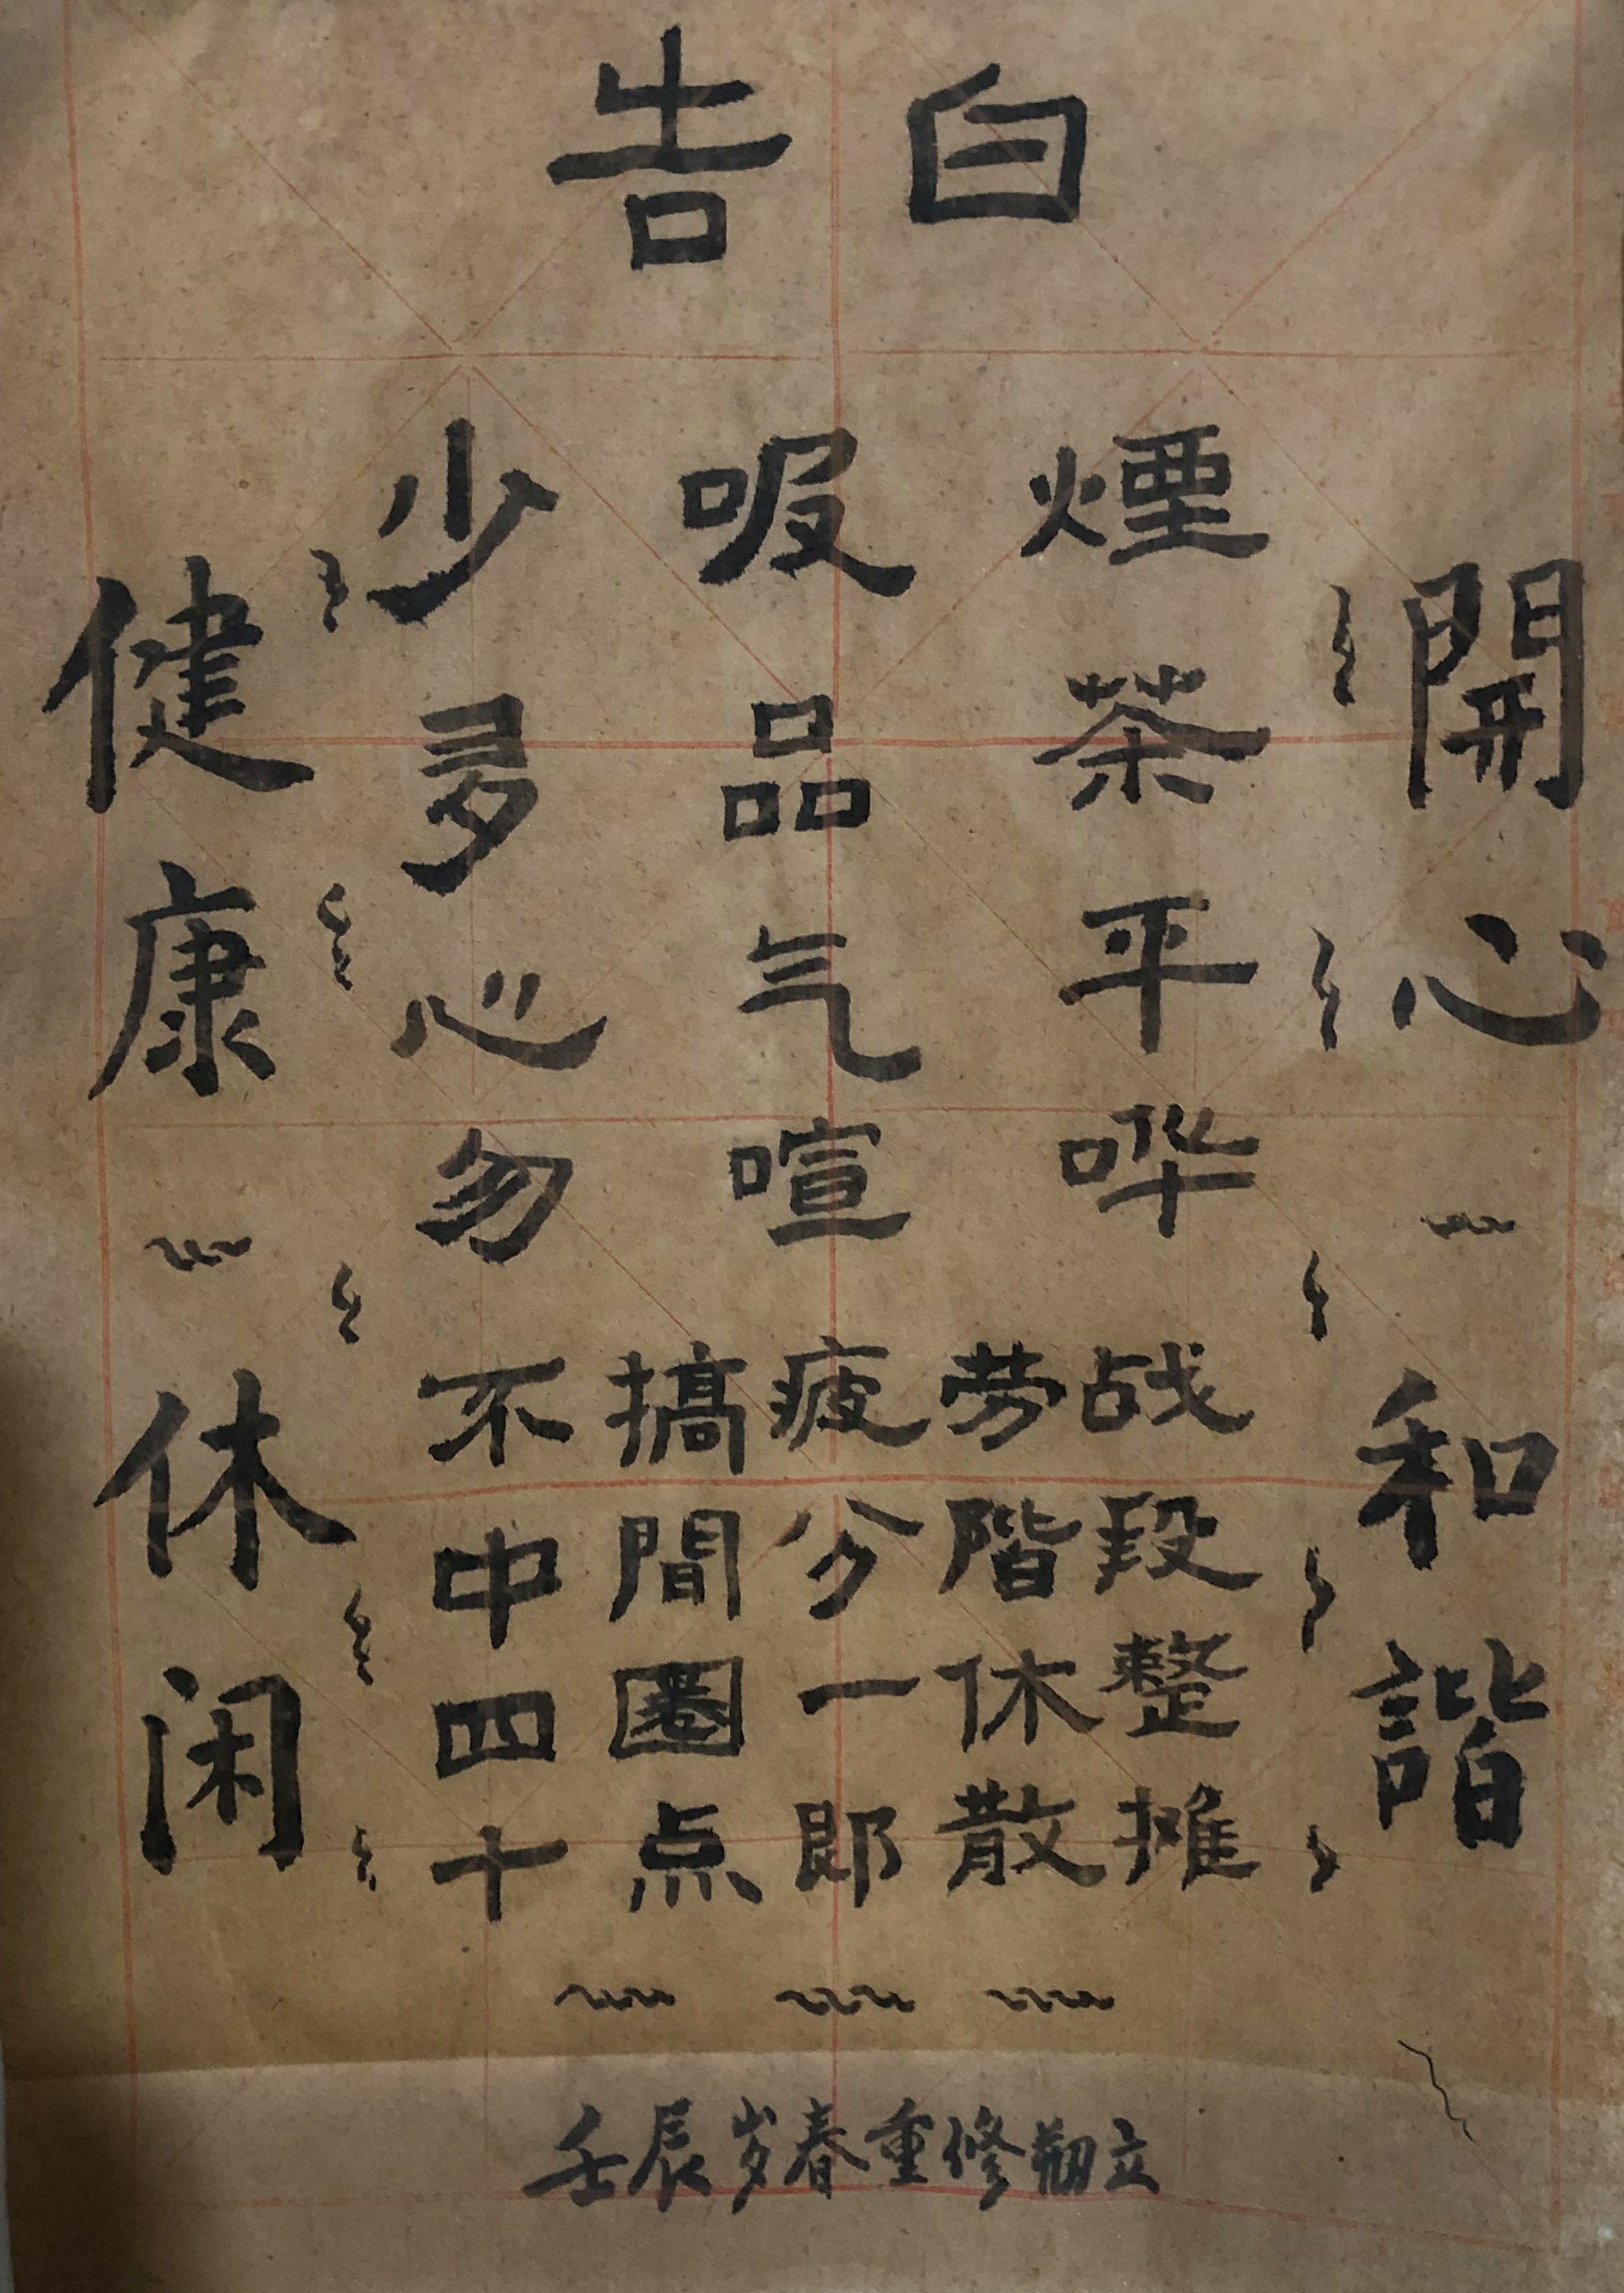 告白
健康
休闲
少吸煙
多品茶
心气平
勿喧哗
不搞疲劳战
中間分階段
四圈一休整
十点即散摊
開心
和諧
壬辰岁春重修立